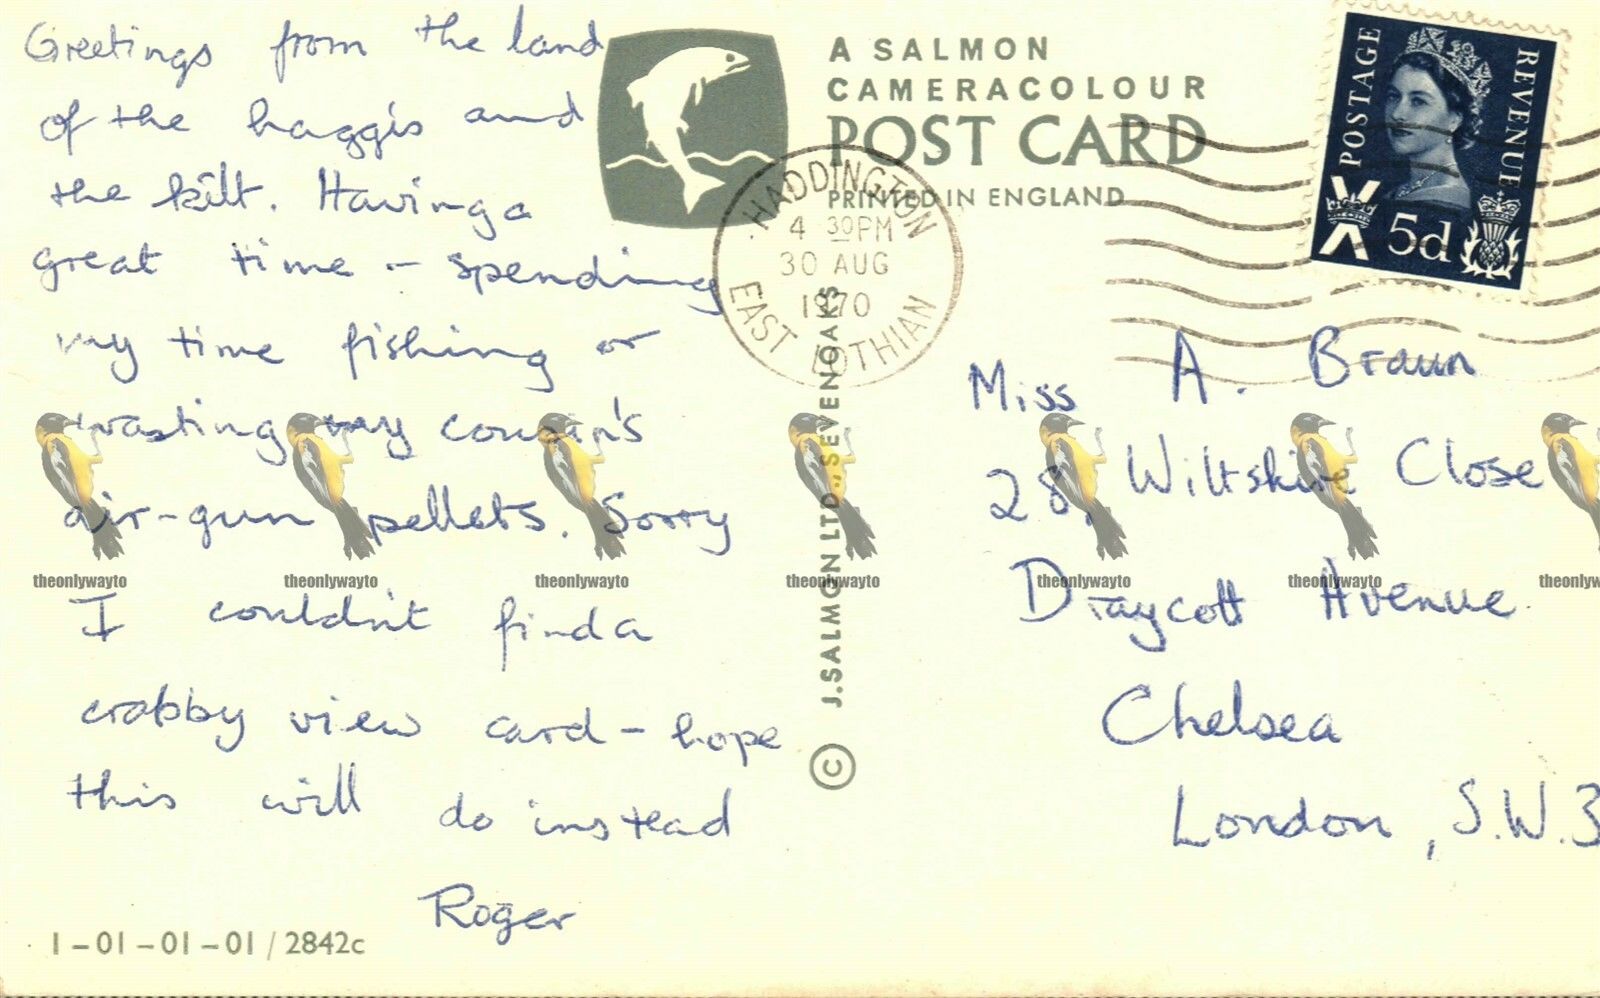 Greetings from the land
of the haggis and
the kilt. Having a
great time – spending
my time fishing or
wasting my cousin's
air-gun pellets. Sorry
I couldn't find a
crabby view card – hope
this will do instead
Roger
1-01-01-01/2842c
A SALMON
CAMERACOLOUR
POST CARD
PRINTED IN ENGLAND
HADDINGTON
4 30PM
30 AUG
1970
EAST LOTHIAN
© J.SALMON LTD., SEVENOAKS
POSTAGE
REVENUE
5d
Miss A. Braun
28, Wiltshire Close
Draycott Avenue
Chelsea
London, S.W.3
theonlywayto theonlywayto theonlywayto theonlywayto theonlywayto theonlywayto theonlyw